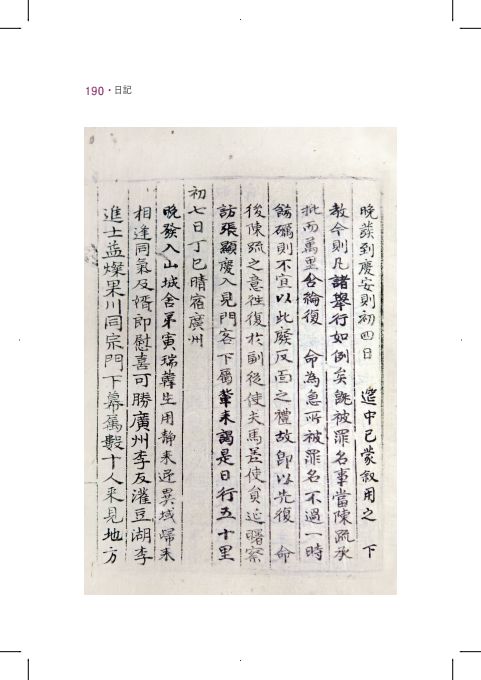 190・日記
晚發到慶安則初四日 筵中已蒙叙用之 下
教令則凡諸擧行如例矣旣被罪名事當陳疏承
批而萬里含綸復 命為急所被罪名不過一時
飭礪則不宜以此廢反面之禮故卽以先復 命
後陳疏之意往復於副從使夫馬差使負延曙察
訪張顯慶入見門客下屬輩來謁是日行五十里
初七日丁巳晴宿廣州
晚發入山城舍弟寅瑞韓生用靜來迎異域歸来
相逢同氣及婿郎慰喜可勝廣州李友漼豆湖李
進士益燦果川同宗門下幕屬數十人來見地方